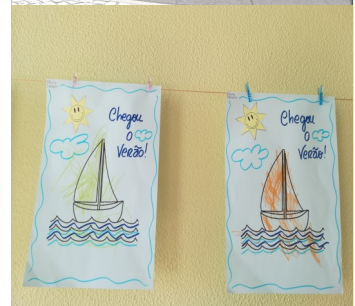 Chegou
o
Verão!
Chegou
o
Verão!